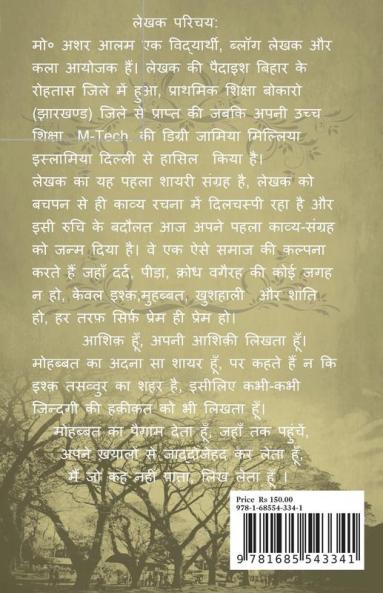 लेखक परिचय:
मो० अशर आलम एक विद्यार्थी, ब्लॉग लेखक और
कला आयोजक हैं। लेखक की पैदाइश बिहार के
रोहतास जिले में हुआ, प्राथमिक शिक्षा बोकारो
(झारखण्ड) जिले से प्राप्त की जबकि अपनी उच्च
शिक्षा M-Tech की डिग्री जामिया मिल्लिया
इस्लामिया दिल्ली से हासिल किया है।
लेखक का यह पहला शायरी संग्रह है, लेखक को
बचपन से ही काव्य रचना में दिलचस्पी रहा है और
इसी रुचि के बदौलत आज अपने पहला काव्य-संग्रह
को जन्म दिया है। वे एक ऐसे समाज की कल्पना
करते हैं जहाँ दर्द, पीडा, क्रोध वगैरह की कोई जगह
न हो, केवल इश्क़,मुहब्बत, खुशहाली और शांति
हो, हर तरफ़ सिर्फ प्रेम ही प्रेम हो।
आशिक़ हूँ, अपनी आशिकी लिखता हूँ।
मोहब्बत का अदना सा शायर हूँ, पर कहते हैं न कि
इश्क़ तसव्वुर का शहर है, इसीलिए कभी-कभी
जिन्दगी की हक़ीकत को भी लिखता हूँ।
मोहब्बत का पैग़ाम देता हूँ, जहाँ तक पहुंचें,
अपने ख़यालों से जाद्दोजेहद कर लेता हूँ,
मैं जो कह नहीं पाता, लिख लेता हूँ ।
Price Rs 150.00
978-1-68554-334-1
9 781685 543341